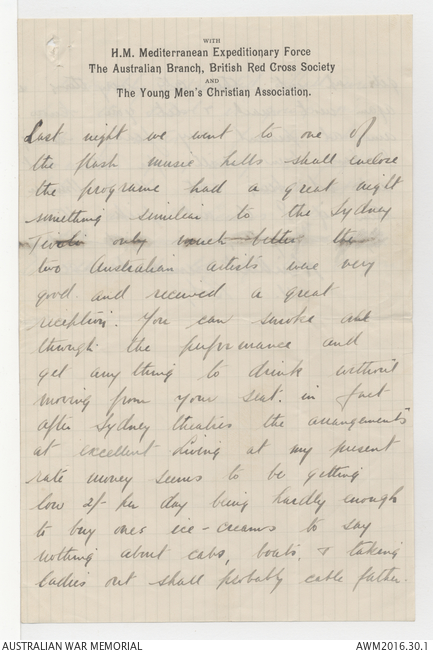 WITH
H.M. Mediterranean Expeditionary Force
The Australian Branch, British Red Cross Society
AND
The Young Men's Christian Association.
Last night we went to one of
the flash music halls shall enclose
the programe had a great night
something similiar to the Sydney
Tivoli only much better the
two Australian artists were very
good and received a great
reception. You can smoke all
through the performance and
get anything to drink without
moving from your seat. in fact
after Sydney theatres the arrangements
at excellent living at my present
rate money seems to be getting
low 2/- per day being hardly enough
to buy ones ice-creams to say
nothing about cabs, boats, & taking
ladies out shall probably cable father.
AUSTRALIAN WAR MEMORIAL
AWM2016.30.1